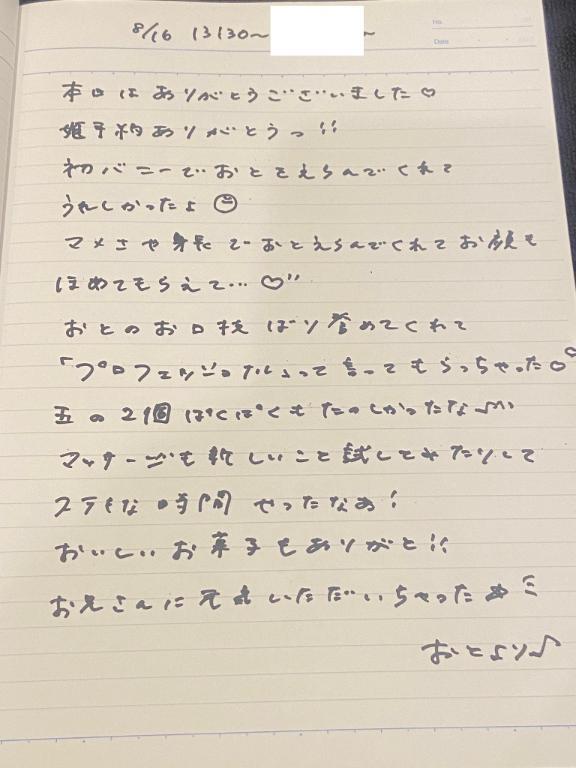 8/16 13:30～ ～
No.
Date
本日はありがとうございました♡
姫予約ありがとうっ!!
初バニーでおとをえらんでくれて
うれしかったよ
マメさや身長でおとえらんでくれてお顔も
ほめてもらえて…♡"
おとのお口技ばり誉めてくれて
「プロフェッショナル」って言ってもらっちゃった♡♡
玉の2個ぱくぱくもたのしかったな♪
マッサージも新しいこと試してみたりして
ステキな時間やったなぁ!
おいしいお菓子もありがと!!
お兄さんに元気いただいちゃったぁ
おとより♪